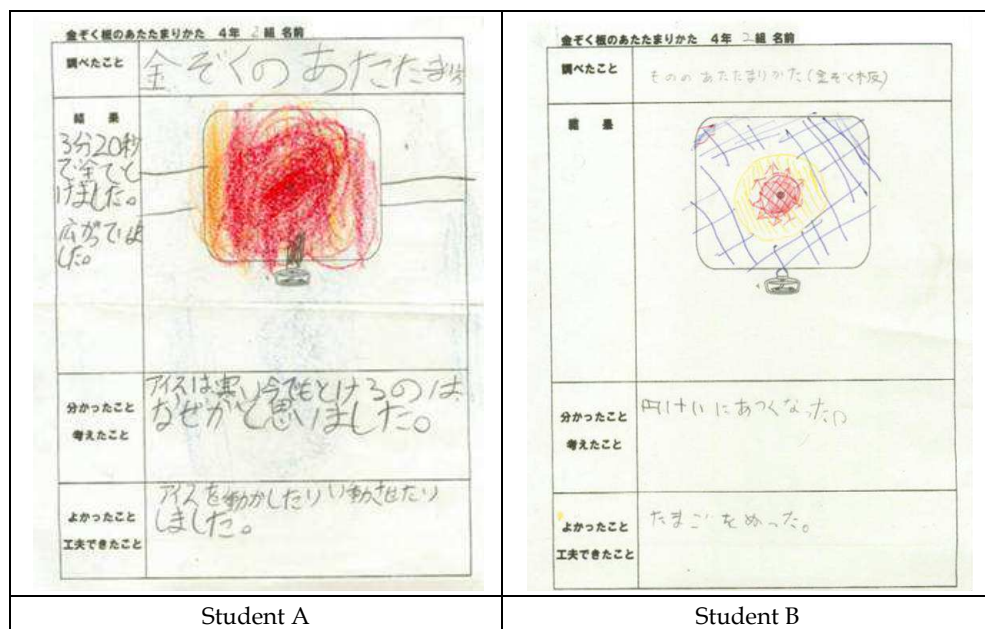 金ぞく板のあたたまりかた 4年 2組 名前
調べたこと
金ぞくのあたたまり方
結果
3分20秒
で全てと
けました。
広がっていま
した。
分かったこと
考えたこと
アイスは寒い今でもとけるのは
なぜかと思いました。
よかったこと
工夫できたこと
アイスを動かしたりい動させたり
しました。
Student A
金ぞく板のあたたまりかた 4年 2組 名前
調べたこと
もののあたたまりかた(金ぞく板)
結果
分かったこと
考えたこと
円けいにあつくなった。
よかったこと
工夫できたこと
たまごをぬった。
Student B